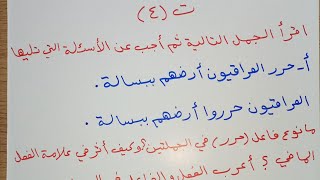 ت (٤)
اقرأ الجمل التالية ثم أجب عن الأسئلة التي تليها
أ- حرر العراقيون أرضهم ببسالة .
العراقيون حرروا أرضهم ببسالة .
ما نوع فاعل (حرر) في الجملتين؟ وكيف أثر في علامة الفعل
الماضي؟ أعرب الفعل والفاعل في